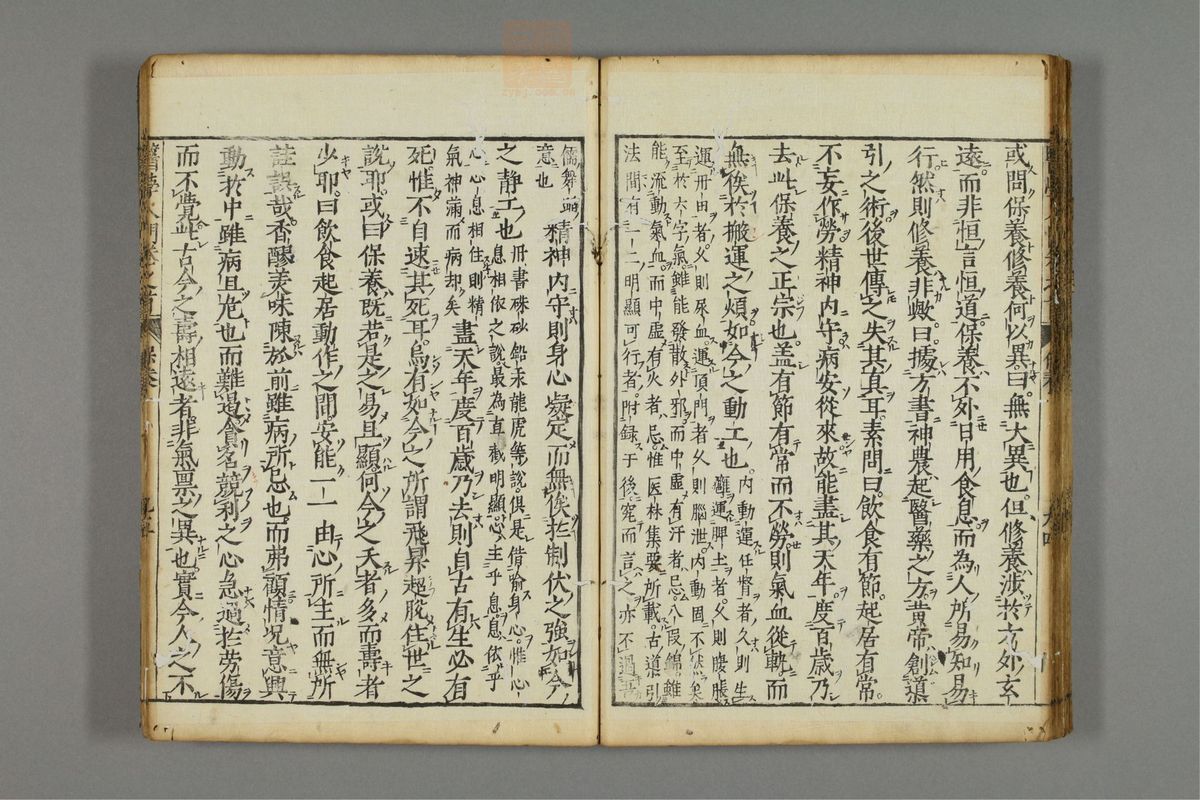 或問保養修養何以異曰無大異也但修養涉於方外玄
遠而非恒言恒道保養不外日用食息而為人所易知易
行然則修養非歟曰據方書神農起醫藥之方黄帝創導
引之術後世傳之失其真耳素問曰飲食有節起居有常
不妄作勞精神内守病安從來故能盡其天年度百歲乃
去此保養之正宗也盖有節有常而不勞則氣血從軌而
無俟於搬運之煩如今之動工也
内動運任督者久則生
癰運脾土者久則腹脹
運丹田者久則尿血運頂門者久則腦泄内動固不然矣
至於六字氣雖能發散外邪而中虚有汗者忌八段錦雖
能流動氣血而中虚有火者忌惟医林集要所載古導引
法間有一二明顯可行者附録于後究而言之亦不過吾
儒舞蹈
意也
精神内守則身心凝定而無俟於制伏之強如今
之靜工也
丹書硃砂鉛汞龍虎等說俱是借喻身心惟心
息相依之說最為直截明顯心主乎息息依乎
心心息相住則精
氣神滿而病却矣
盡天年度百歲乃去則自古有生必有
死惟不自速其死耳烏有如今之所謂飛昇超脫住世之
說耶或曰保養既若是之易且顯何今之夭者多而壽者
少耶曰飲食起居動作之間安能一一由心所主而無所
詿誤哉香醪美味陳於前雖病所忌也而弗顧情况意興
動於中雖病且危也而難遏貪名競利之心急過於勞傷
而不覺此古今之壽相遠者非氣禀之異也實今人之不